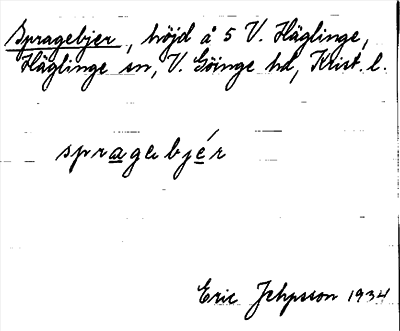 Spragebjer, höjd å 5 V. Häglinge,
Häglinge sn, V. Göinge hd, Krist. l.
spragebjér
Eric Jepsson 1934